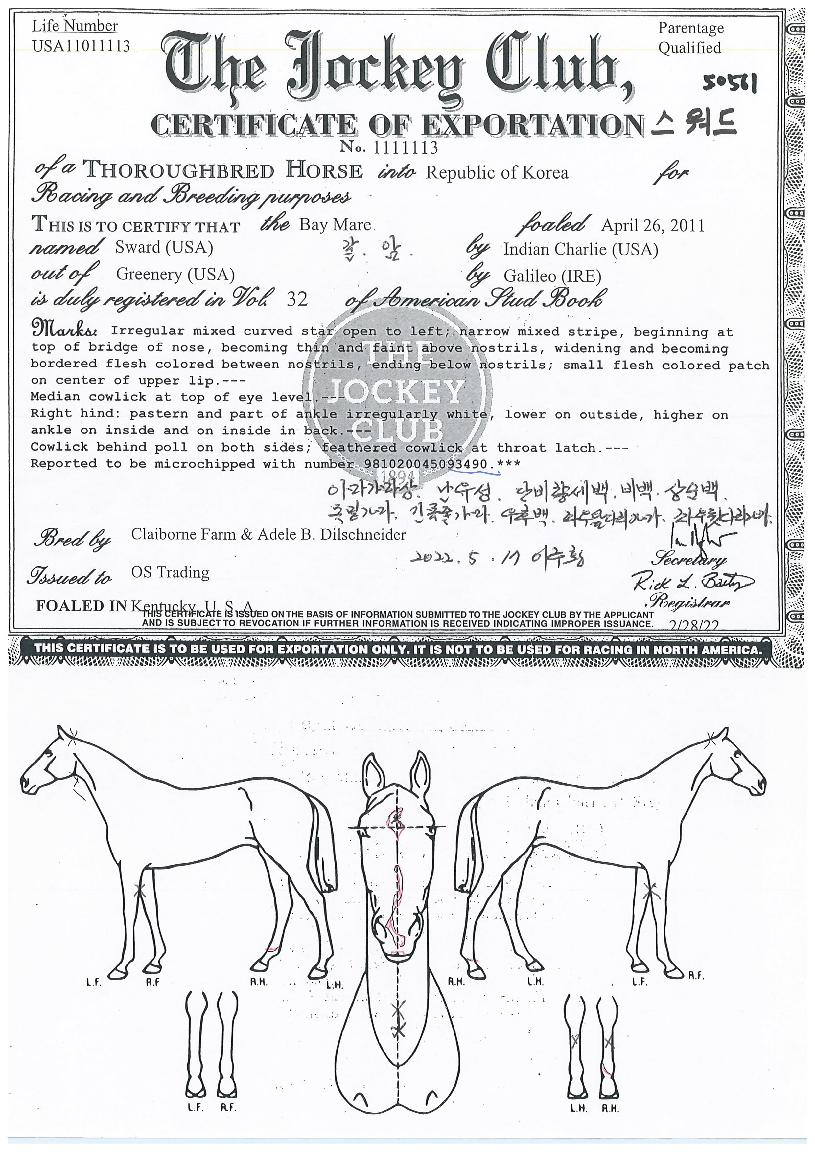 Life Number
USA11011113
Parentage
Qualified
50561
The Jockey Club,
CERTIFICATE OF EXPORTATION
스워드
No. 1111113
of a THOROUGHBRED HORSE into Republic of Korea for
Racing and Breeding purposes
THIS IS TO CERTIFY THAT the Bay Mare foaled April 26, 2011
named Sward (USA) 갈. 암. by Indian Charlie (USA)
out of Greenery (USA) by Galileo (IRE)
is duly registered in Vol. 32 of American Stud Book
Marks: Irregular mixed curved star open to left; narrow mixed stripe, beginning at
top of bridge of nose, becoming thin and faint above nostrils, widening and becoming
bordered flesh colored between nostrils, ending below nostrils; small flesh colored patch
on center of upper lip.---
Median cowlick at top of eye level.---
Right hind: pastern and part of ankle irregularly white, lower on outside, higher on
ankle on inside and on inside in back.---
Cowlick behind poll on both sides; feathered cowlick at throat latch.---
Reported to be microchipped with number 981020045093490.***
THE
JOCKEY
CLUB
1894
비백. 상순백.
Bred by Claiborne Farm & Adele B. Dilschneider
2022. 5. 17 이주황
Secretary
Issued to OS Trading
Rick L. Bailey
Registrar
FOALED IN Kentucky, U. S. A.
2/28/22
THIS CERTIFICATE IS ISSUED ON THE BASIS OF INFORMATION SUBMITTED TO THE JOCKEY CLUB BY THE APPLICANT
AND IS SUBJECT TO REVOCATION IF FURTHER INFORMATION IS RECEIVED INDICATING IMPROPER ISSUANCE.
THIS CERTIFICATE IS TO BE USED FOR EXPORTATION ONLY. IT IS NOT TO BE USED FOR RACING IN NORTH AMERICA.
L.F. R.F R.H. L.H. R.H. L.H. L.F. R.F.
L.F. R.F. L.H. R.H.